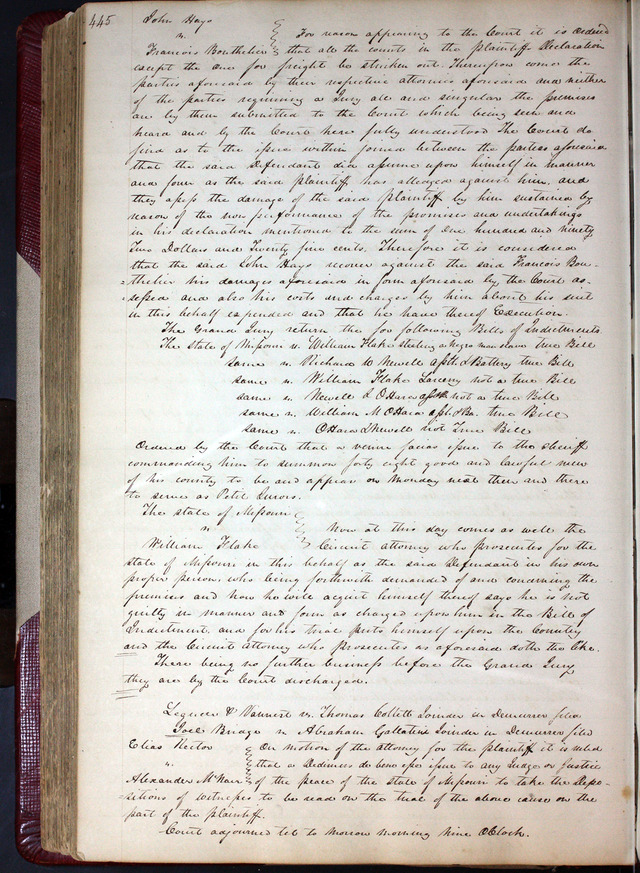 445
John Hays
vs.
Francois Bouthelier
For reason appearing to the Court it is ordered
that all the counts in the plaintiff Declaration
except the one for freight be stricken out. Thereupon comes the
parties aforesaid by their respective attornies aforesaid and neither
of the parties requiring a Jury all and singular the premises
are by them submitted to the Court which being seen and
heard and by the Court here fully understood The Court do
find as to the issue within joined between the parties aforesaid
that the said Defendant did assume upon himself in manner
and form as the said plaintiff has alledged against him, and
they assess the damage of the said plaintiff by him sustained by
reason of the non performance of the promises and undertakings
in his declaration mentioned to the sum of One hundred and ninety
Two Dollars and Twenty five cents, Therefore it is considered
that the said John Hays recover against the said Francois Bou-
thelier his damages aforesaid in form aforesaid by the Court as-
sessed and also his costs and charges by him about his suit
in this behalf expended and that he have thereof Execution.
The Grand Jury return the following Bills of Indictments
The State of Missouri vs. William Flake stealing a negro man slave True Bill
same vs. Richard Newell asslt & Battery true Bill
same vs. William Flake Larceny not a true Bill
same vs. Newell & OHara asslt not a true Bill
same vs. William M OHara asslt & Ba. true Bill
same vs. OHara & Newell Not True Bill
Ordered by the Court that a venire facias issue to the sheriff
commanding him to summon forty eight good and lawful men
of his county to be and appear on Monday next then and there
to serve as Petit Jurors.
The State of Missouri
vs.
William Flake
Now at this day comes as well the
Circuit attorney who prosecutes for the
state of Missouri in this behalf as the said Defendant in his own
proper person, who being forthwith demanded of and concerning the
premises and how he will acquit himself thereof says he is not
guilty in manner and form as charged upon him in the Bill of
Indictment, and for his trial puts himself upon the Country
and the Circuit Attorney who prosecutes as aforesaid doth the like.
There being no further business before the Grand Jury
they are by the Court discharged.
vs. Thomas Joinder in Demurrer filed
Joel Bridge vs. Abraham Gallatin Joinder in Demurrer filed
Elias Rector
vs.
Alexander McNair
On motion of the attorney for the plaintiff it is ruled
that a Dedimus de bene esse issue to any Judge or Justice
of the peace of the state of Missouri to take the Depo-
sitions of witnesses to be read on the trial of the above cause on the
part of the plaintiff.
Court adjourned til to morrow morning Nine OClock.